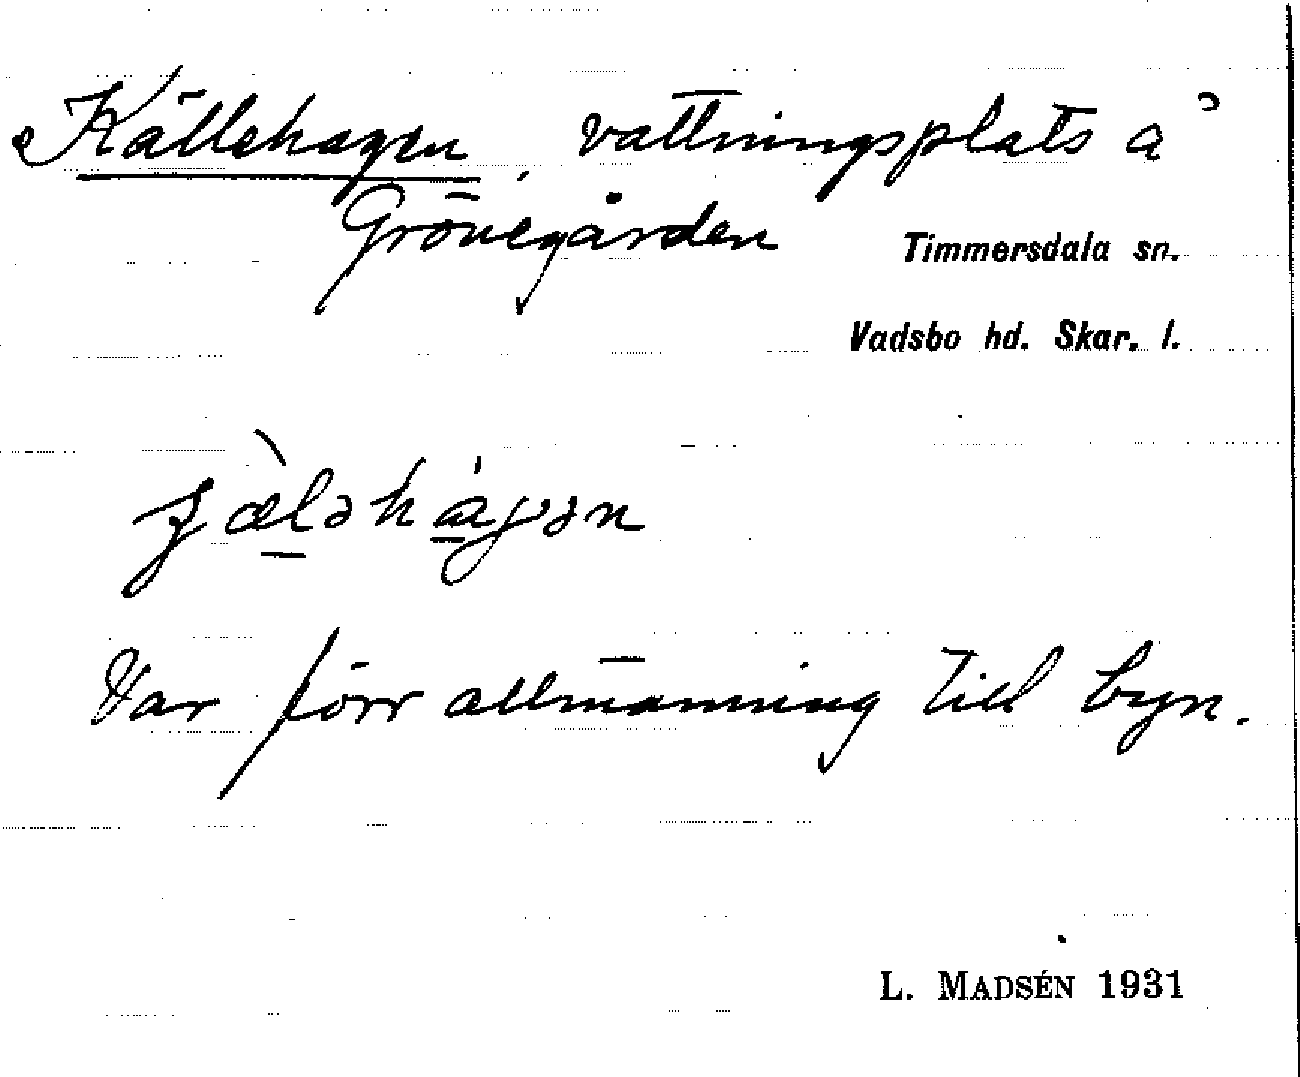 Källehagen, vattningsplats å
Grönegården
Timmersdala sn.
Vadsbo hd. Skar. l.
ʃæ̀ləhágən
Var förr allmänning till byn.
L. MADSÉN 1931